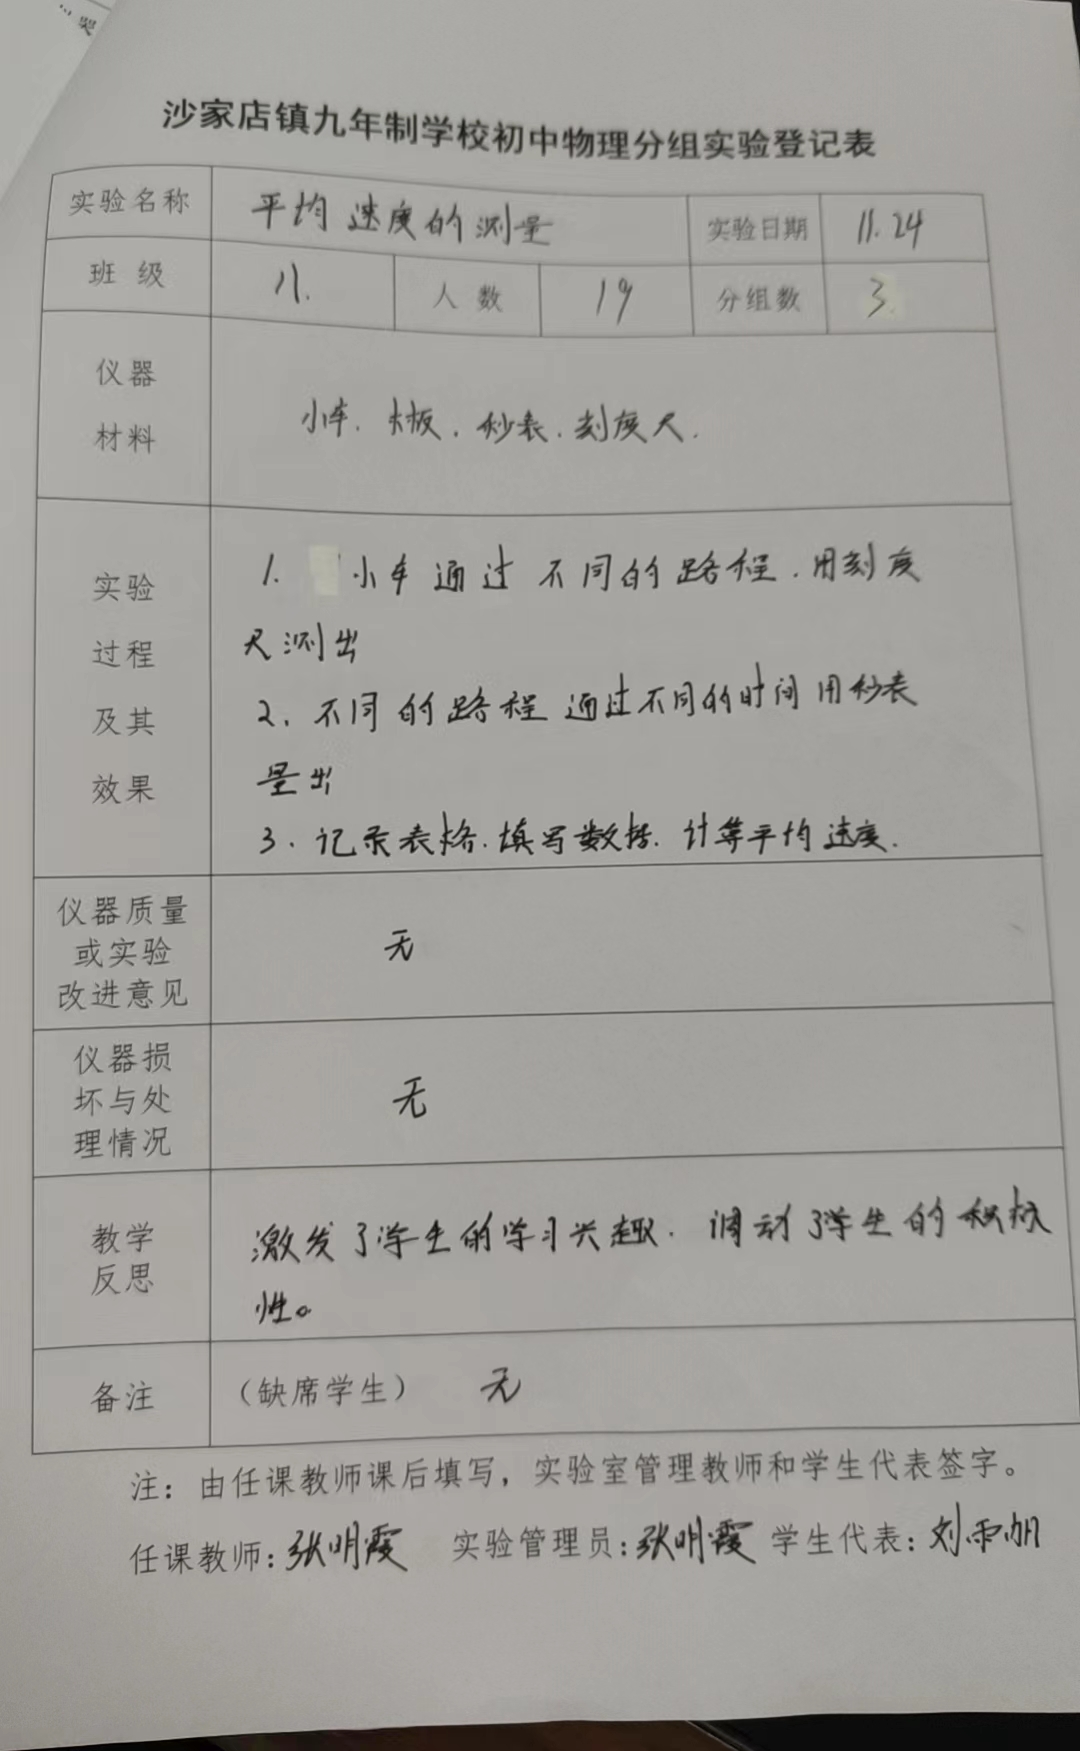 沙家店镇九年制学校初中物理分组实验登记表
实验名称 平均速度的测量 实验日期 11.24
班级 八. 人数 19 分组数 3.
仪器
材料
小车、木板、秒表、刻度尺.
实验
过程
及其
效果
1. 小车通过不同的路程.用刻度
尺测出
2、不同的路程通过不同的时间用秒表
量出
3、记录表格.填写数据.计算平均速度.
仪器质量
或实验
改进意见
无
仪器损
坏与处
理情况
无
教学
反思
激发了学生的学习兴趣.调动了学生的积极
性。
备注 (缺席学生) 无
注：由任课教师课后填写，实验室管理教师和学生代表签字。
任课教师:张明霞 实验管理员:张明霞 学生代表:刘雨